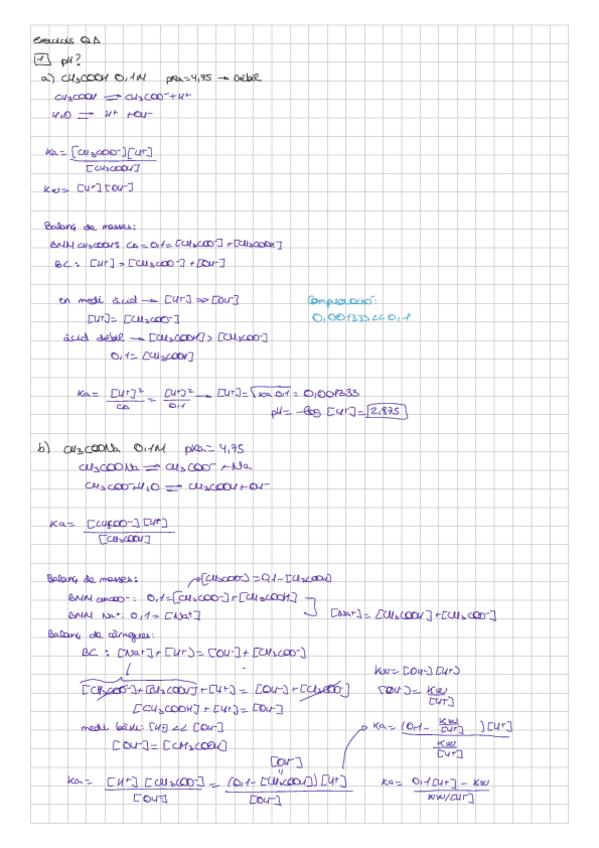 Exercicis QA
1 pH?
a) CH3COOH 0,1M pKa=4,75 → dèbil
CH3COOH ⇌ CH3COO⁻+H⁺
H2O ⇌ H⁺ +OH⁻
Ka= [CH3COO⁻][H⁺] / [CH3COOH]
Kw= [H⁺][OH⁻]
Balanç de masses:
BMM CH3COOH: Ca=0,1=[CH3COO⁻]+[CH3COOH]
BC: [H⁺]=[CH3COO⁻]+[OH⁻]
en medi àcid → [H⁺]>>[OH⁻]
Comprovació:
[H⁺]=[CH3COO⁻]
0,001333<<0,1
àcid dèbil → [CH3COOH]>[CH3COO⁻]
0,1=[CH3COOH]
Ka= [H⁺]² / Ca = [H⁺]² / 0,1 → [H⁺]=√Ka·0,1=0,001333
pH=-log [H⁺]=2,875
b) CH3COONa 0,1M pKa=4,75
CH3COONa ⇌ CH3COO⁻+Na
CH3COO⁻+H2O ⇌ CH3COOH+OH⁻
Ka= [CH3COO⁻][H⁺] / [CH3COOH]
Balanç de masses: [CH3COO⁻]=0,1-[CH3COOH]
BMM CH3COO⁻: 0,1=[CH3COO⁻]+[CH3COOH]
BMM Na⁺: 0,1=[Na⁺]
[Na⁺]=[CH3COOH]+[CH3COO⁻]
Balanç de càrregues:
BC: [Na⁺]+[H⁺]=[OH⁻]+[CH3COO⁻]
Kw=[OH⁻][H⁺]
[CH3COO⁻]+[CH3COOH]+[H⁺]=[OH⁻]+[CH3COO⁻]
[OH⁻]= Kw / [H⁺]
[CH3COOH]+[H⁺]=[OH⁻]
medi bàsic: [H⁺]<<[OH⁻]
Ka= (0,1- Kw/[H⁺])[H⁺] / Kw/[H⁺]
[OH⁻]=[CH3COOH]
[OH⁻]
Ka= [H⁺][CH3COO⁻] / [OH⁻] = (0,1-[CH3COOH])[H⁺] / [OH⁻]
Ka= 0,1[H⁺]-Kw / Kw/[H⁺]